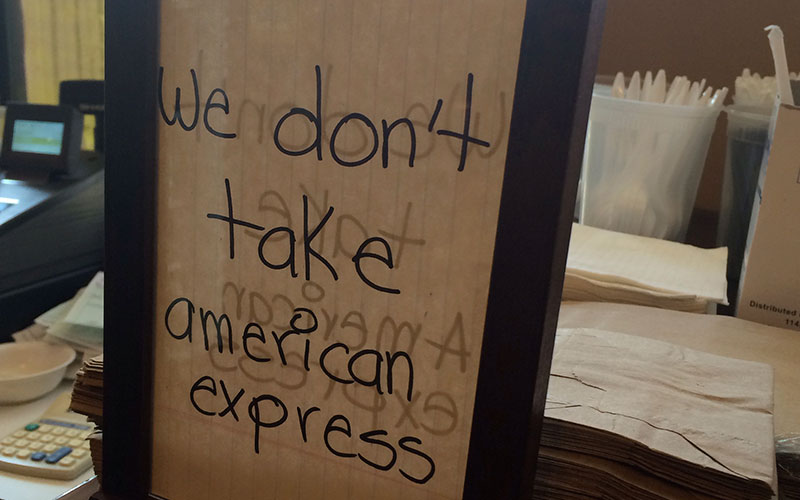 We don't
take
american
express
Distributed
114